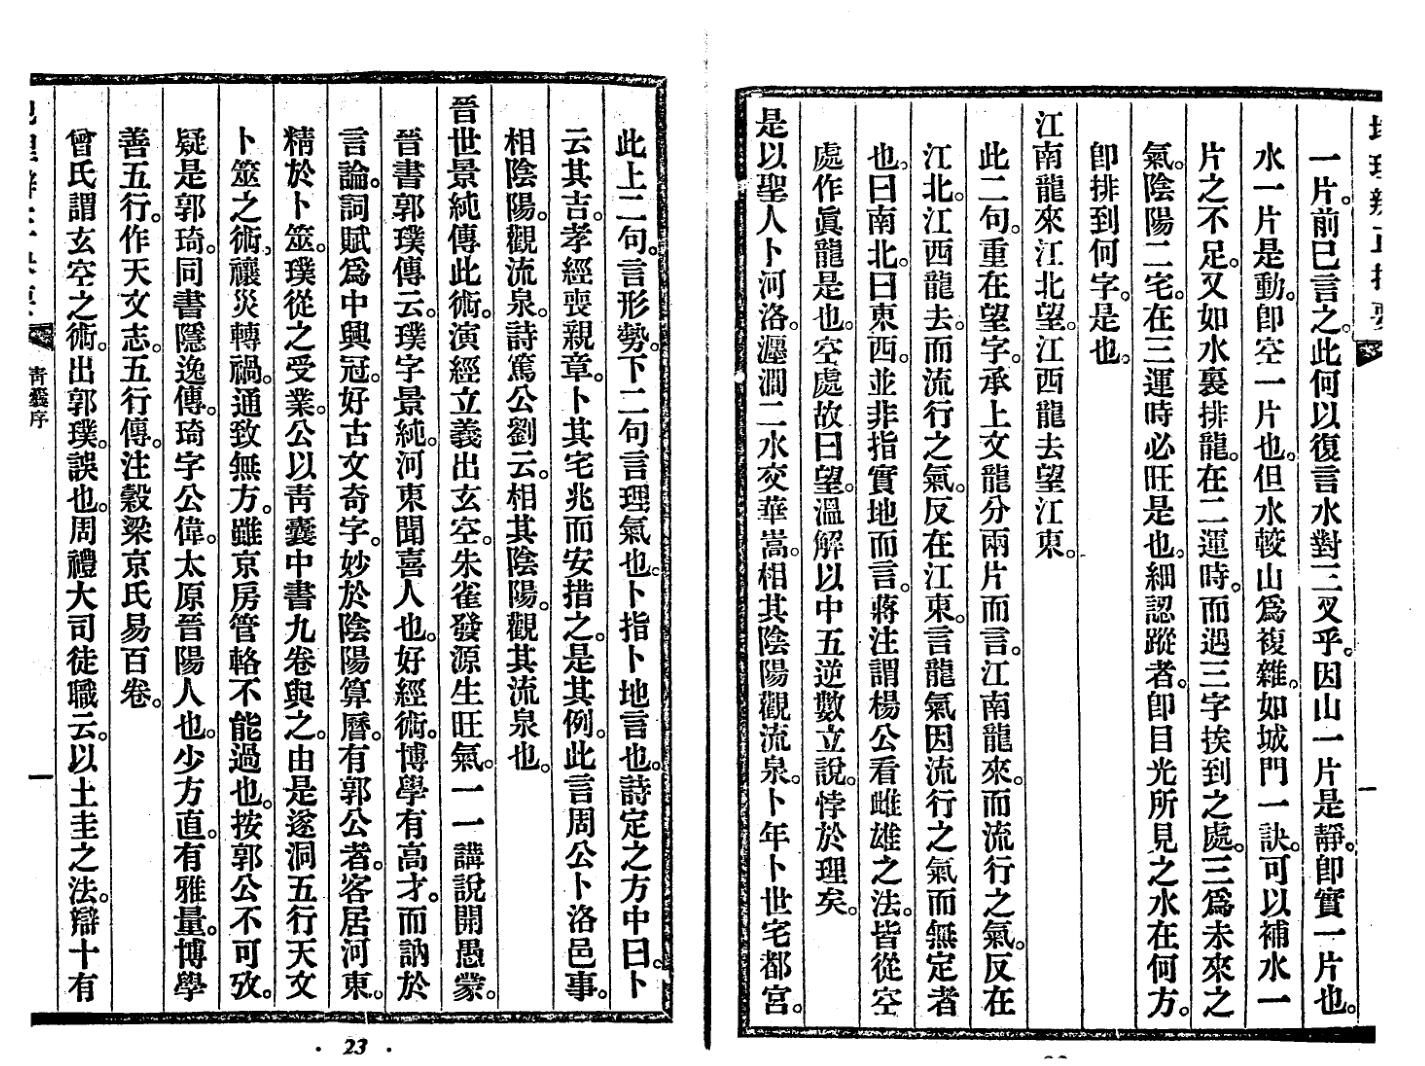 一片。前已言之。此何以復言水對三叉乎。因山一片是靜。卽實一片也。
水一片是動。卽空一片也。但水較山爲複雜。如城門一訣。可以補水一
片之不足。又如水裏排龍。在二運時。而遇三字挨到之處。三爲未來之
氣。陰陽二宅。在三運時必旺是也。細認蹤者。卽目光所見之水在何方。
卽排到何字。是也。
江南龍來江北望。江西龍去望江東。
此二句。重在望字。承上文龍分兩片而言。江南龍來。而流行之氣。反在
江北。江西龍去。而流行之氣。反在江東。言龍氣因流行之氣而無定者
也。曰南北。曰東西。並非指實地而言。蔣注謂楊公看雌雄之法。皆從空
處作眞龍是也。空處故曰望。溫解以中五逆數立說。悖於理矣。
是以聖人卜河洛。瀍澗二水交華嵩。相其陰陽觀流泉。卜年卜世宅都宮。
此上二句。言形勢。下二句言理氣也。卜指卜地言也。詩定之方中曰。卜
云其吉。孝經喪親章。卜其宅兆而安措之。是其例。此言周公卜洛邑事。
相陰陽。觀流泉。詩篤公劉云。相其陰陽。觀其流泉也。
晉世景純傳此術。演經立義出玄空。朱雀發源生旺氣。一一講說開愚蒙。
晉書郭璞傳云。璞字景純。河東聞喜人也。好經術。博學有高才。而訥於
言論。詞賦爲中興冠。好古文奇字。妙於陰陽算曆。有郭公者。客居河東。
精於卜筮。璞從之受業。公以青囊中書九卷與之。由是遂洞五行天文
卜筮之術。禳災轉禍。通致無方。雖京房管輅不能過也。按郭公不可攷。
疑是郭琦。同書隱逸傳。琦字公偉。太原晉陽人也。少方直。有雅量。博學
善五行。作天文志。五行傳。注穀梁京氏易百卷。
曾氏謂玄空之術。出郭璞。誤也。周禮大司徒職云。以土圭之法。辯十有
青囊序
一
· 23 ·